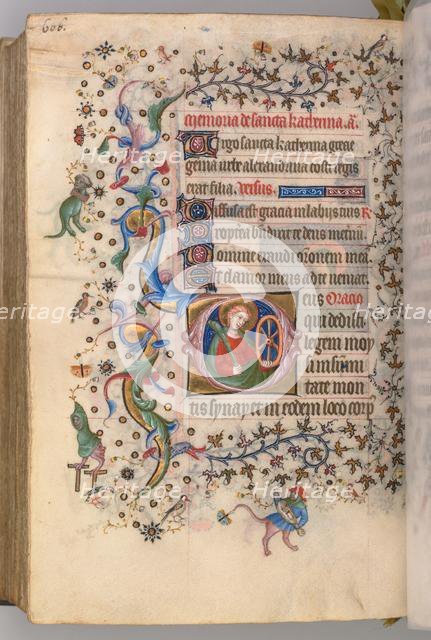 606.
memoria de sancta katherina. añ.
Virgo sancta katherina grecie
gemma urbe alexandrina costi regis
erat filia. Versus.
Diffusa est gracia in labiis tuis R
Propterea benedixit te deus in eternū.
Domine exaudi orationem meā
Et clamor meus ad te veniat.
Oratio
qui dedisti
legem moy
si in sūmi
tate mon
tis synay et in eodem loco corp
Heritage
Images